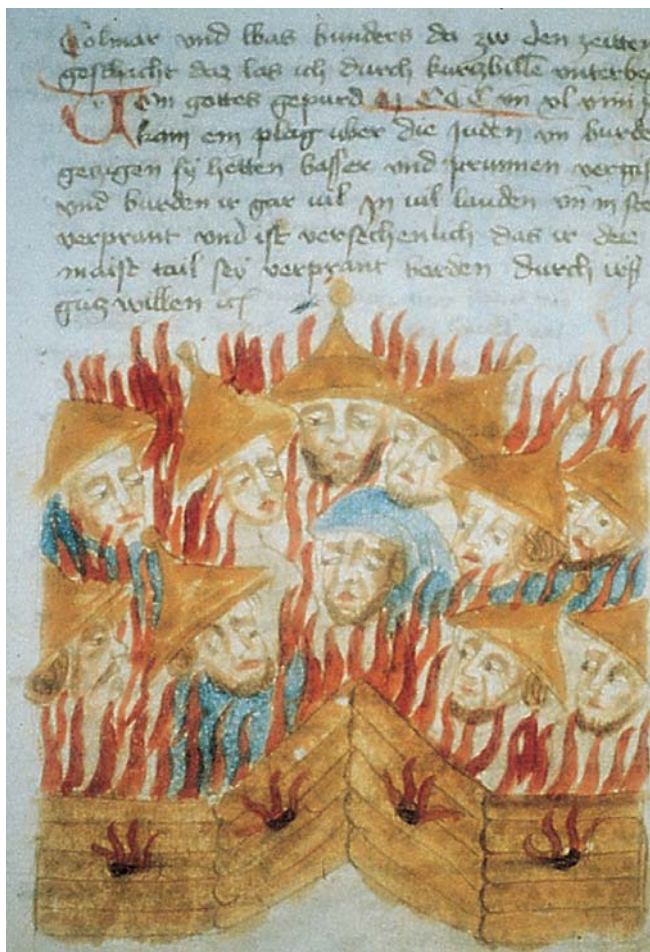 Colmar und was wunders da zw den zeitten
geschicht daz las ich durch kurzwille unterweg
gottes gepurd M CCC vn xl viiii
kam ein plag uber die juden vn wurden
gezigen sy hetten wasser vnd prunnen vergif
vnd wurden ir gar vil In vil landen vn in ste
verprant vnd ist versechenlich das ir der
maist tail sey verprant worden durch irs
gutz willen